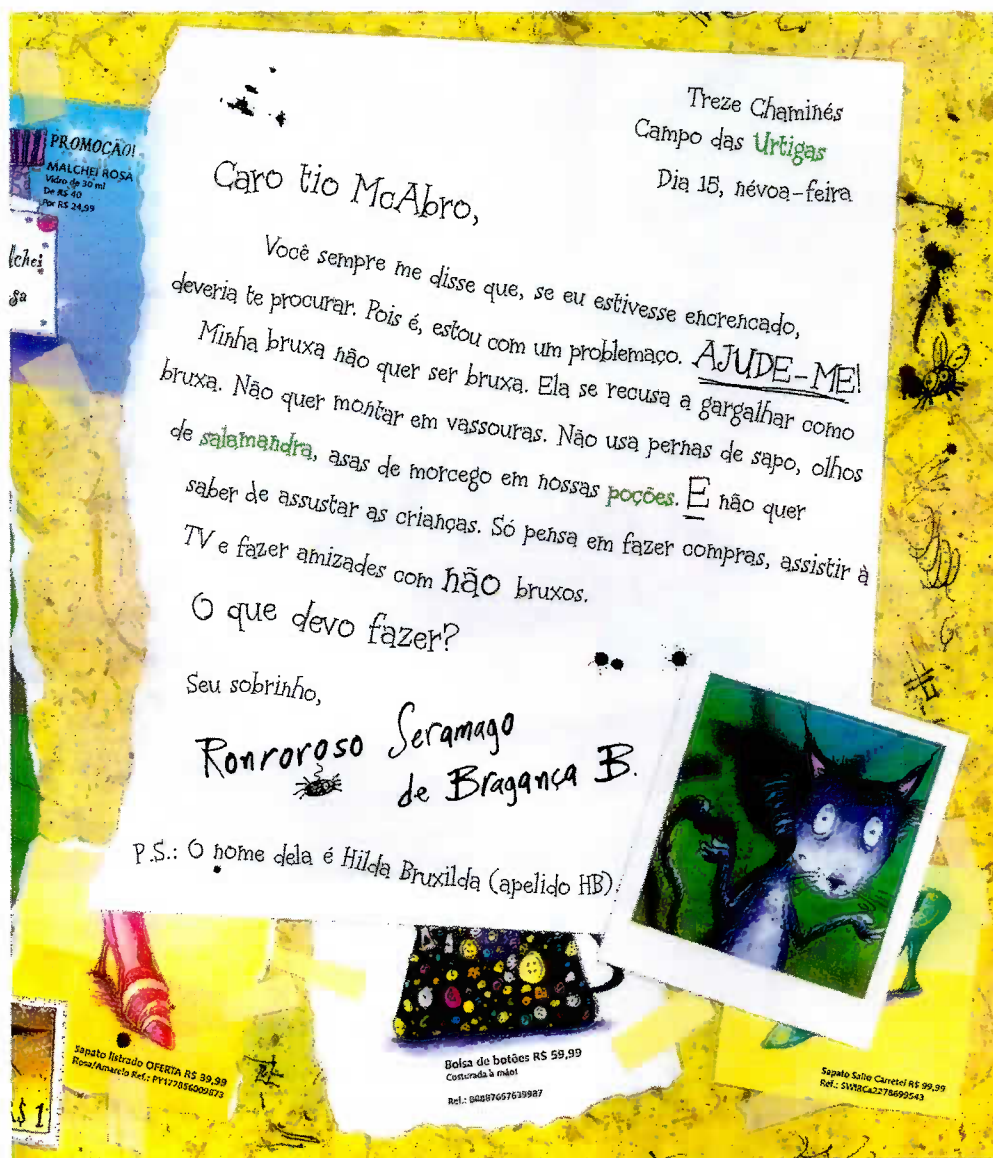 Treze Chaminés
Campo das Urtigas
Dia 15, névoa-feira
PROMOÇÃO!
MALCHEI ROSA
Vidro de 30 ml
De R$ 40
Por R$ 24,99
lchei
sa
Caro tio McAbro,
Você sempre me disse que, se eu estivesse encrencado,
deveria te procurar. Pois é, estou com um problemaço. AJUDE-ME!
Minha bruxa não quer ser bruxa. Ela se recusa a gargalhar como
bruxa. Não quer montar em vassouras. Não usa pernas de sapo, olhos
de salamandra, asas de morcego em nossas poções. E não quer
saber de assustar as crianças. Só pensa em fazer compras, assistir à
TV e fazer amizades com não bruxos.
O que devo fazer?
Seu sobrinho,
Ronroroso Seramago
de Bragança B.
P.S.: O nome dela é Hilda Bruxilda (apelido HB).
Sapato listrado OFERTA R$ 39,99
Rosa/Amarelo Ref.: PY177856009873
Bolsa de botões R$ 59,99
Costurada à mão!
Ref.: B8887657639987
Sapato Salto Carretel R$ 99,99
Ref.: SWIRCa2278699543
R$ 1